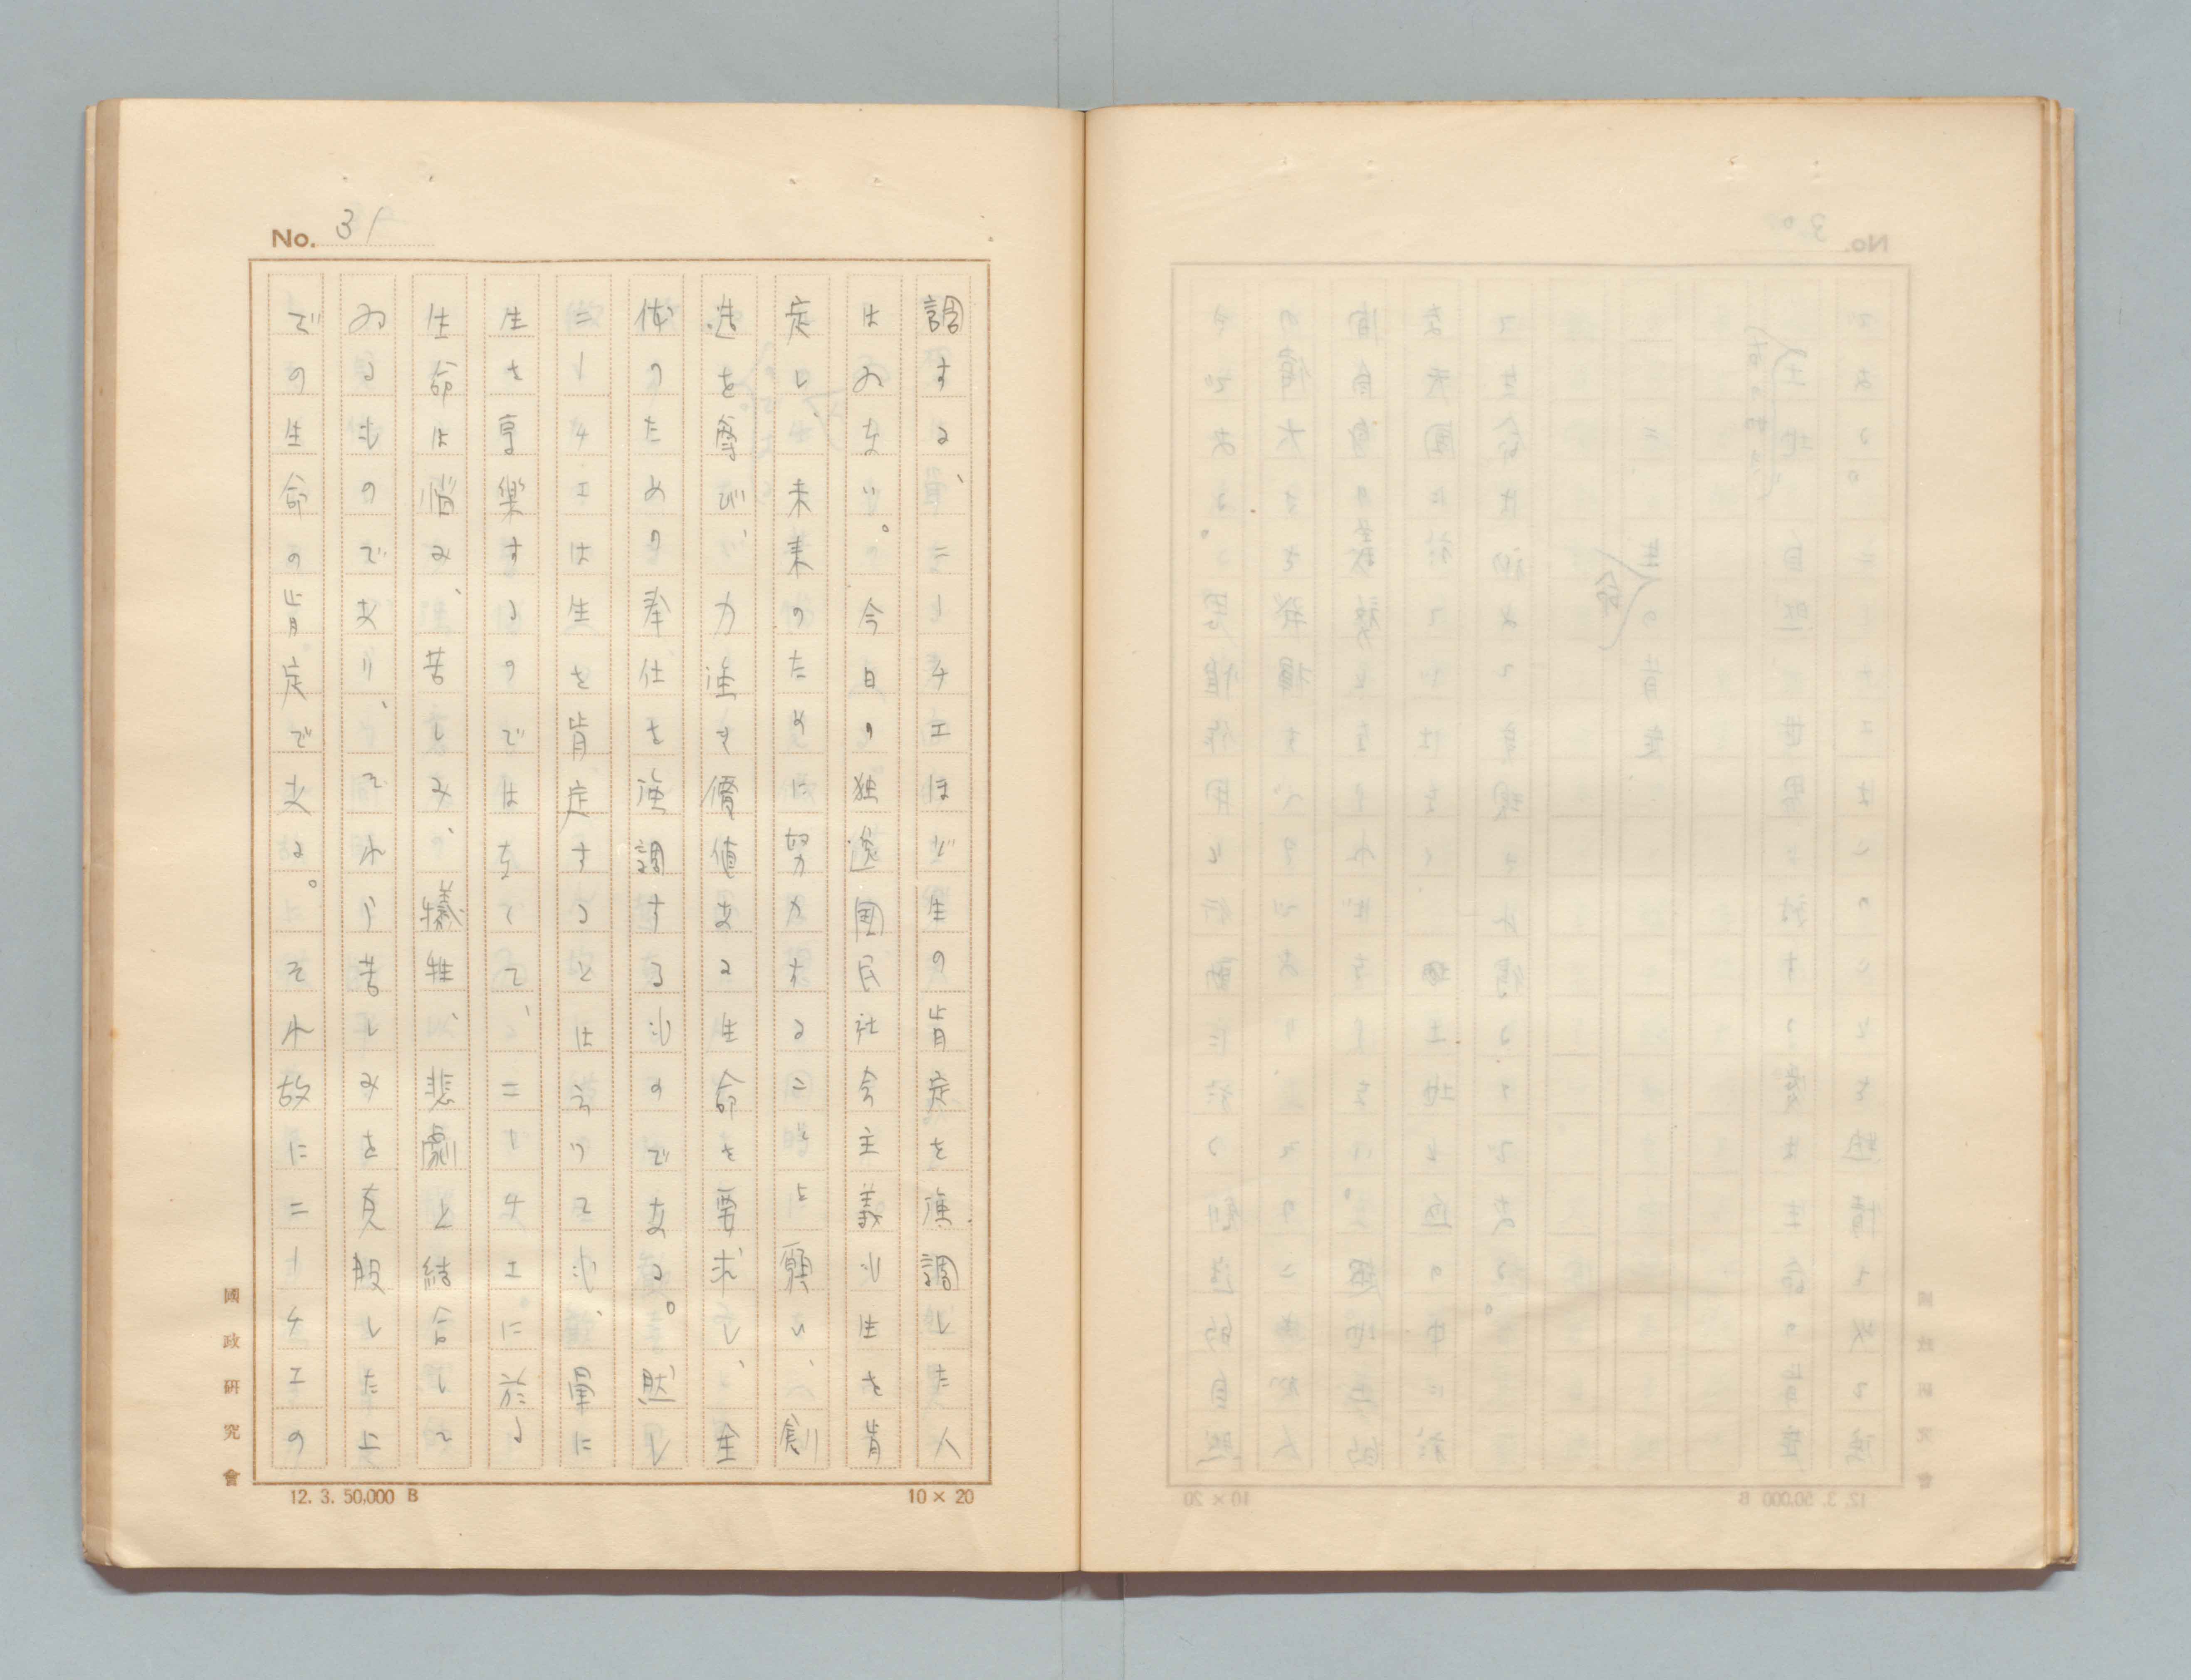 No. 31
調する、ニーチエほど生の肯定を強調した人
はゐない。今日の独逸国民社会主義も生を肯
定し、未来のために努力することを願い、創
造を尊び、力強き價値ある生命を要求し、全
体のためめの奉仕を強調するものである。然し
ニーチエは生を肯定するとは言つても、単に
生を享楽するのではなくて、ニーチエに於る
生命は悩み、苦しみ、犠牲、悲劇と結合して
ゐるものであり、それら苦しみを克服した上
での生命の肯定である。それ故にニーチエの
國政研究會
12. 3. 50,000 B
10×20